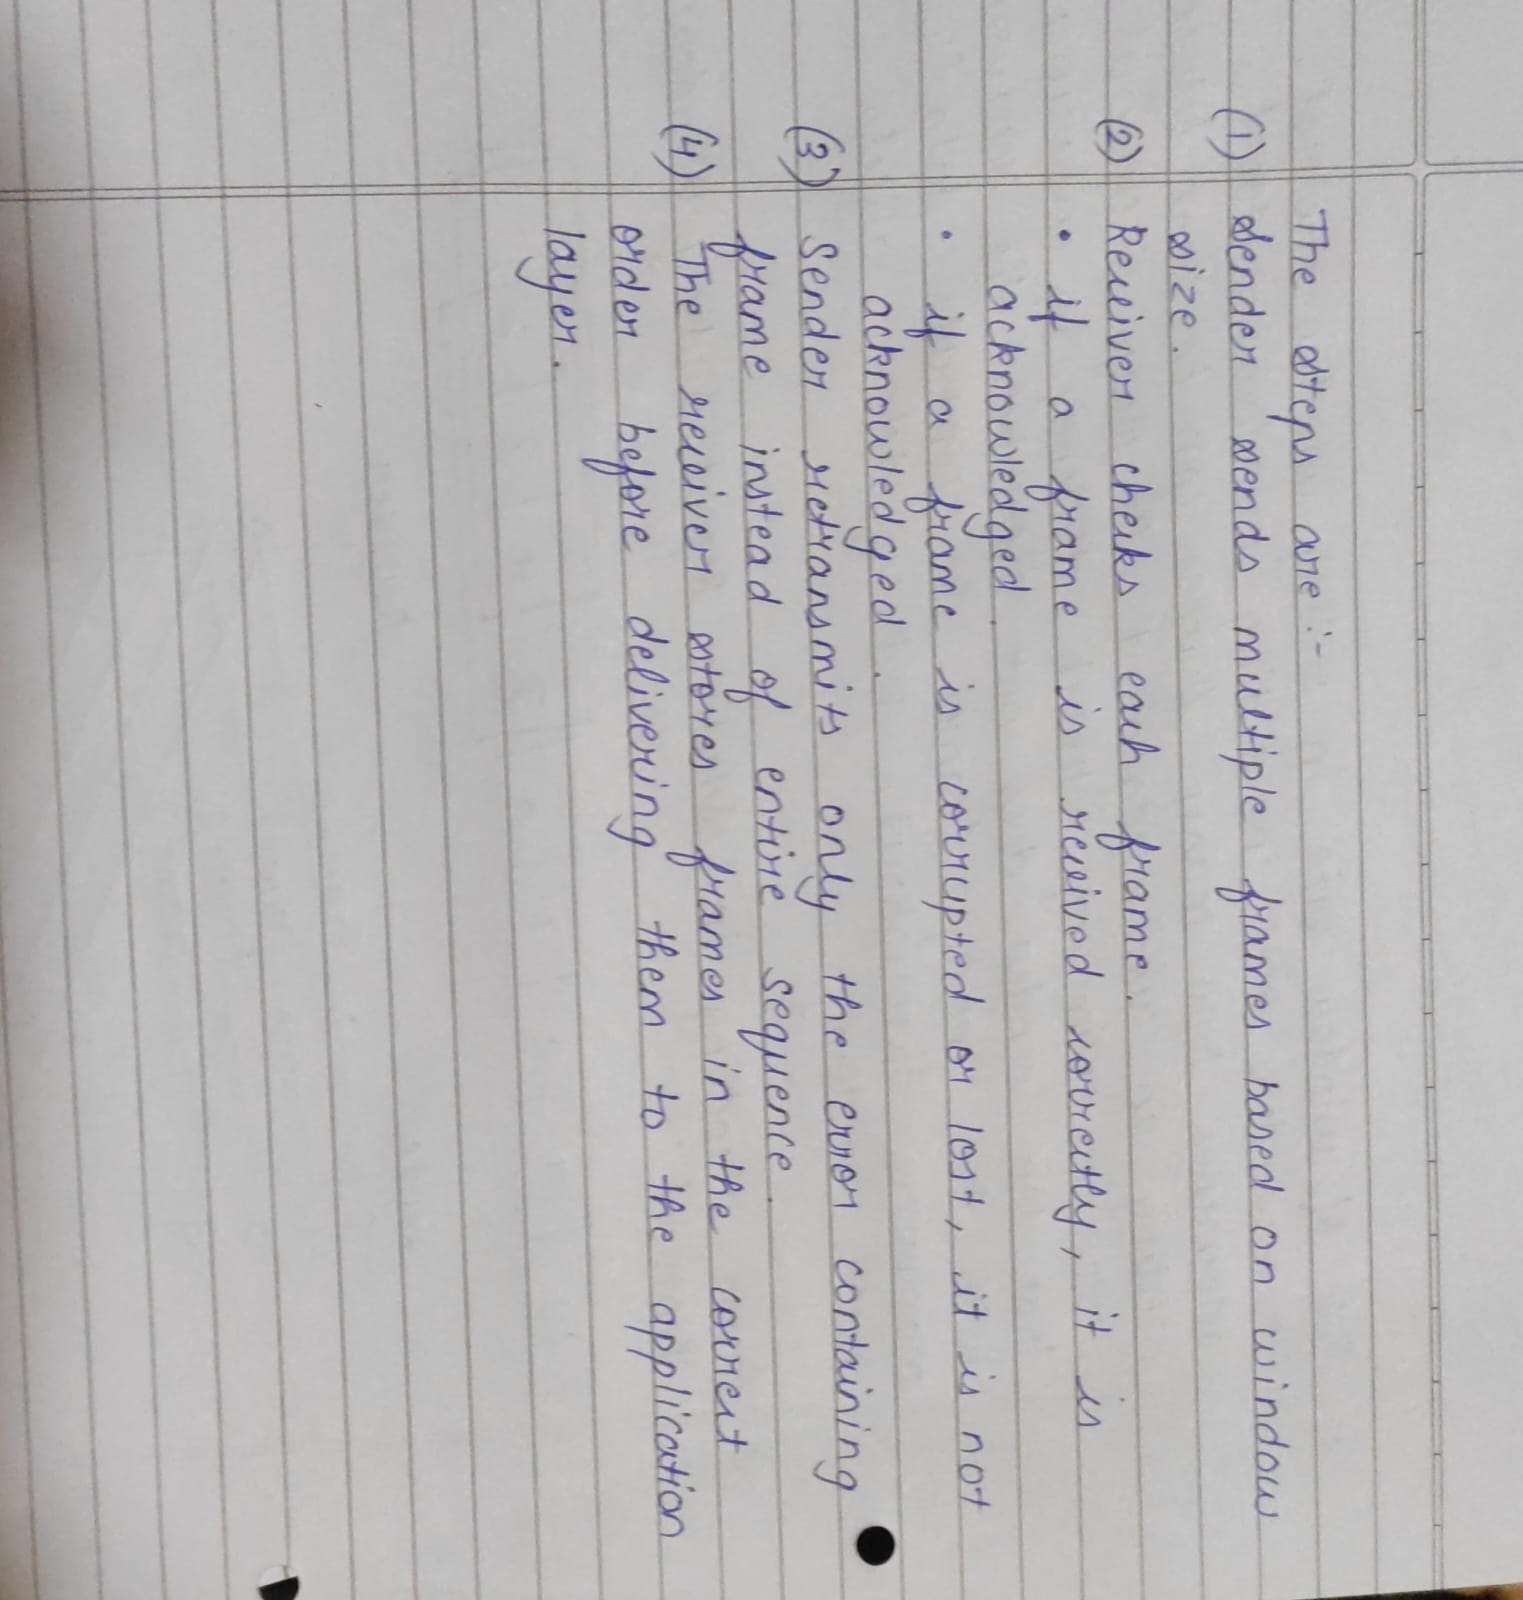 The steps are :-
(1) Sender sends multiple frames based on window
size.
(2) Receiver checks each frame.
• if a frame is received correctly, it is
acknowledged.
• if a frame is corrupted or lost, it is not
acknowledged.
(3) Sender retransmits only the error containing
frame instead of entire sequence.
(4) The receiver stores frames in the correct
order before delivering them to the application
layer.